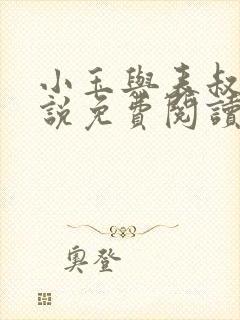 小玉與表叔
說免費閱讀
奧登